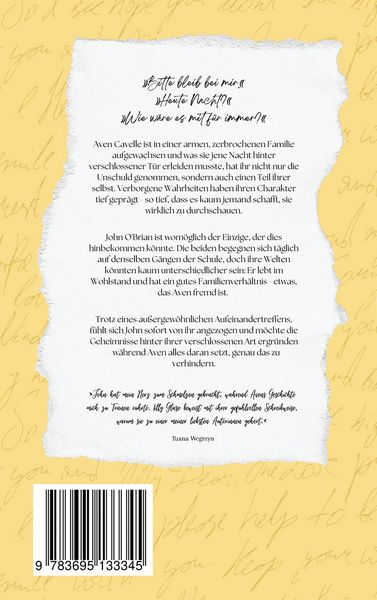 »Bitte bleib bei mir«
»Heute Nacht?«
»Wie wäre es mit für immer?«
Aven Cavelle ist in einer armen, zerbrochenen Familie
aufgewachsen und was sie jene Nacht hinter
verschlossener Tür erleiden musste, hat ihr nicht nur die
Unschuld genommen, sondern auch einen Teil ihrer
selbst. Verborgene Wahrheiten haben ihren Charakter
tief geprägt - so tief, dass es kaum jemand schafft, sie
wirklich zu durchschauen.
John O'Brian ist womöglich der Einzige, der dies
hinbekommen könnte. Die beiden begegnen sich täglich
auf denselben Gängen der Schule, doch ihre Welten
könnten kaum unterschiedlicher sein: Er lebt im
Wohlstand und hat ein gutes Familienverhältnis - etwas,
das Aven fremd ist.
Trotz eines außergewöhnlichen Aufeinandertreffens,
fühlt sich John sofort von ihr angezogen und möchte die
Geheimnisse hinter ihrer verschlossenen Art ergründen
während Aven alles daran setzt, genau das zu
verhindern.
»John hat mein Herz zum Schmelzen gebracht, während Avens Geschichte
mich zu Tränen rührte. Glose beweist mit ihrer gefühlvollen Schreibweise,
warum sie zu einer meiner liebsten Autorinnen gehört.«
Tuana Wegrzyn
9 783695 133345